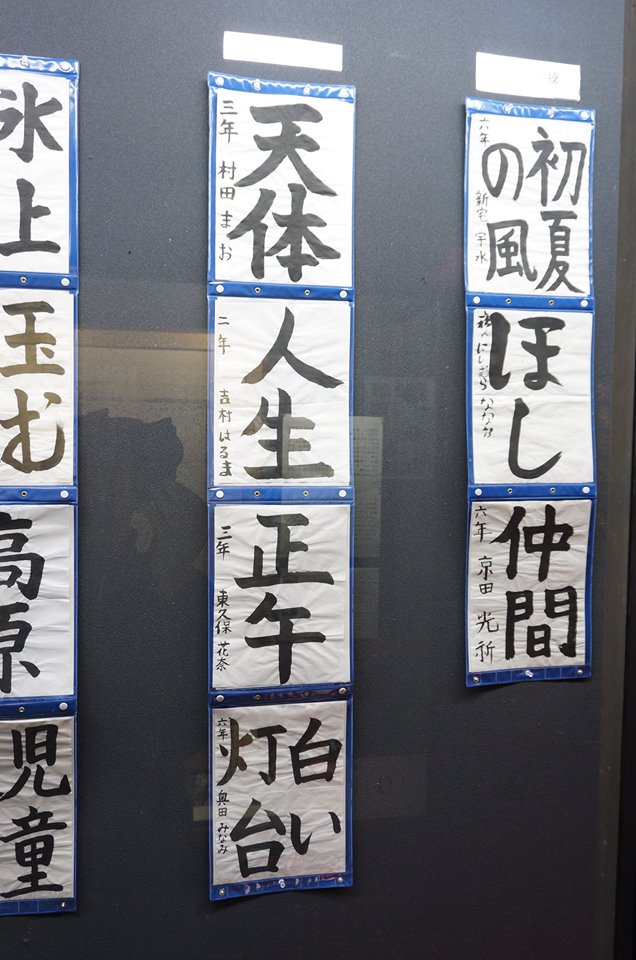 氷上
玉む
高原
児童
天体
三年 村田 まお
人生
二年 吉村 はるま
正午
三年 東久保 花奈
白い
灯台
六年 奥田 みなみ
校
初夏
の風
六年 新宅 宇水
ほし
ににしむら ななか
仲間
六年 京田 光祈